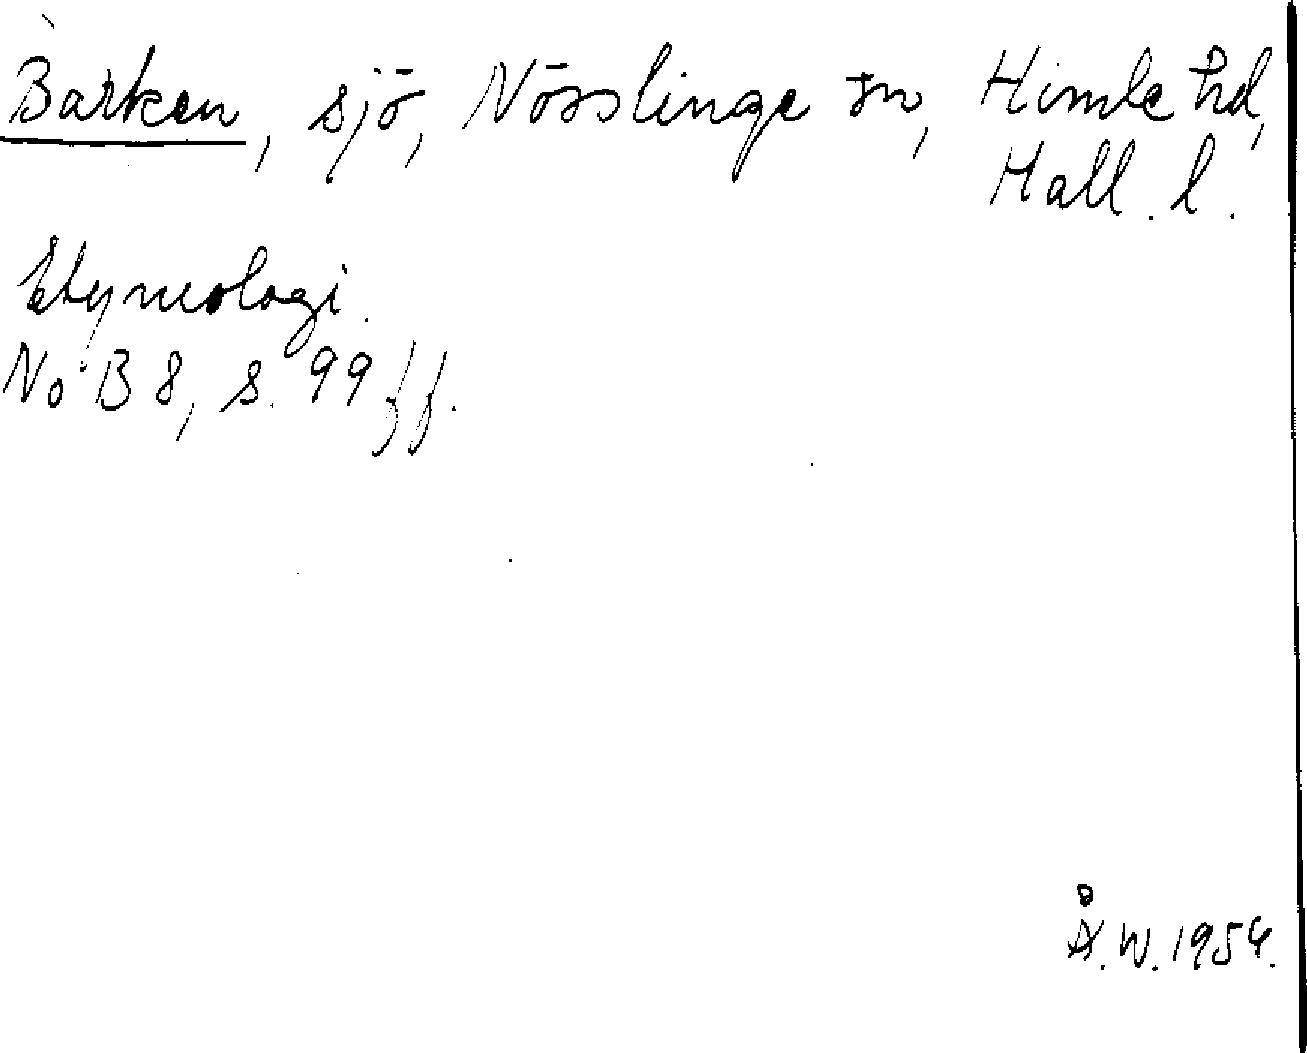 Barken, sjö, Nösslinge sn, Himle hd,
Hall. l.
Etymologi.
NoB 8, s. 99 ff.
Å.W. 1954.